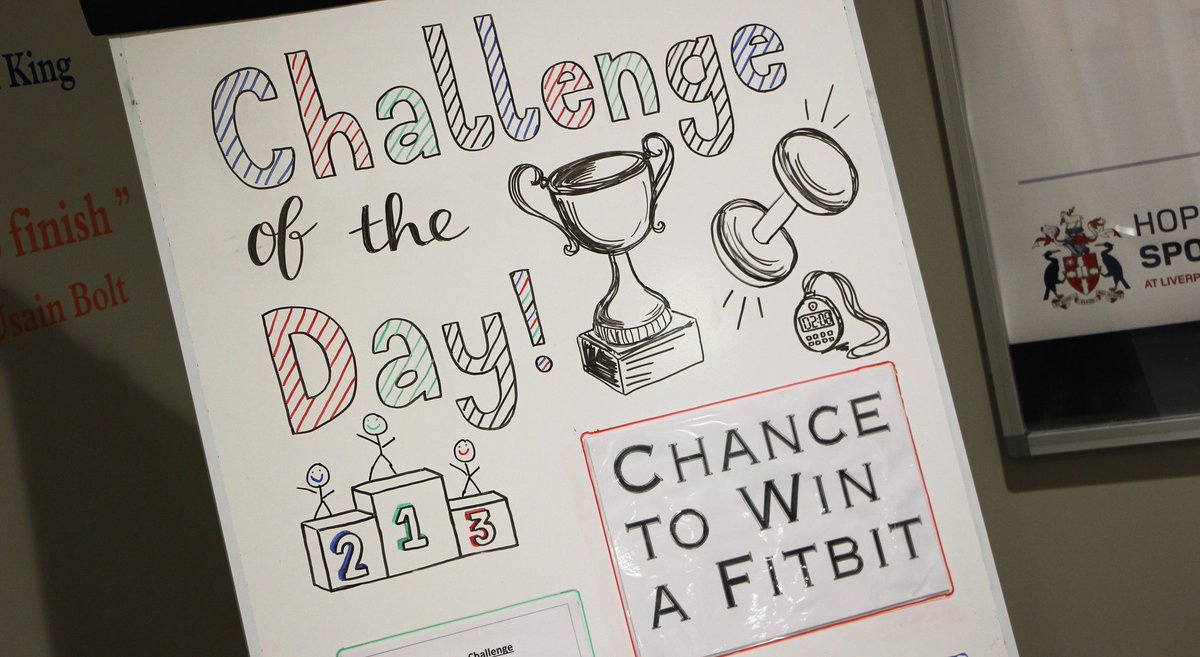 King
Challenge
of the
Day!
finish"
Usain Bolt
02:19
2 1 3
CHANCE
TO WIN
A FITBIT
Challenge
HOP
SPO
AT LIVERP